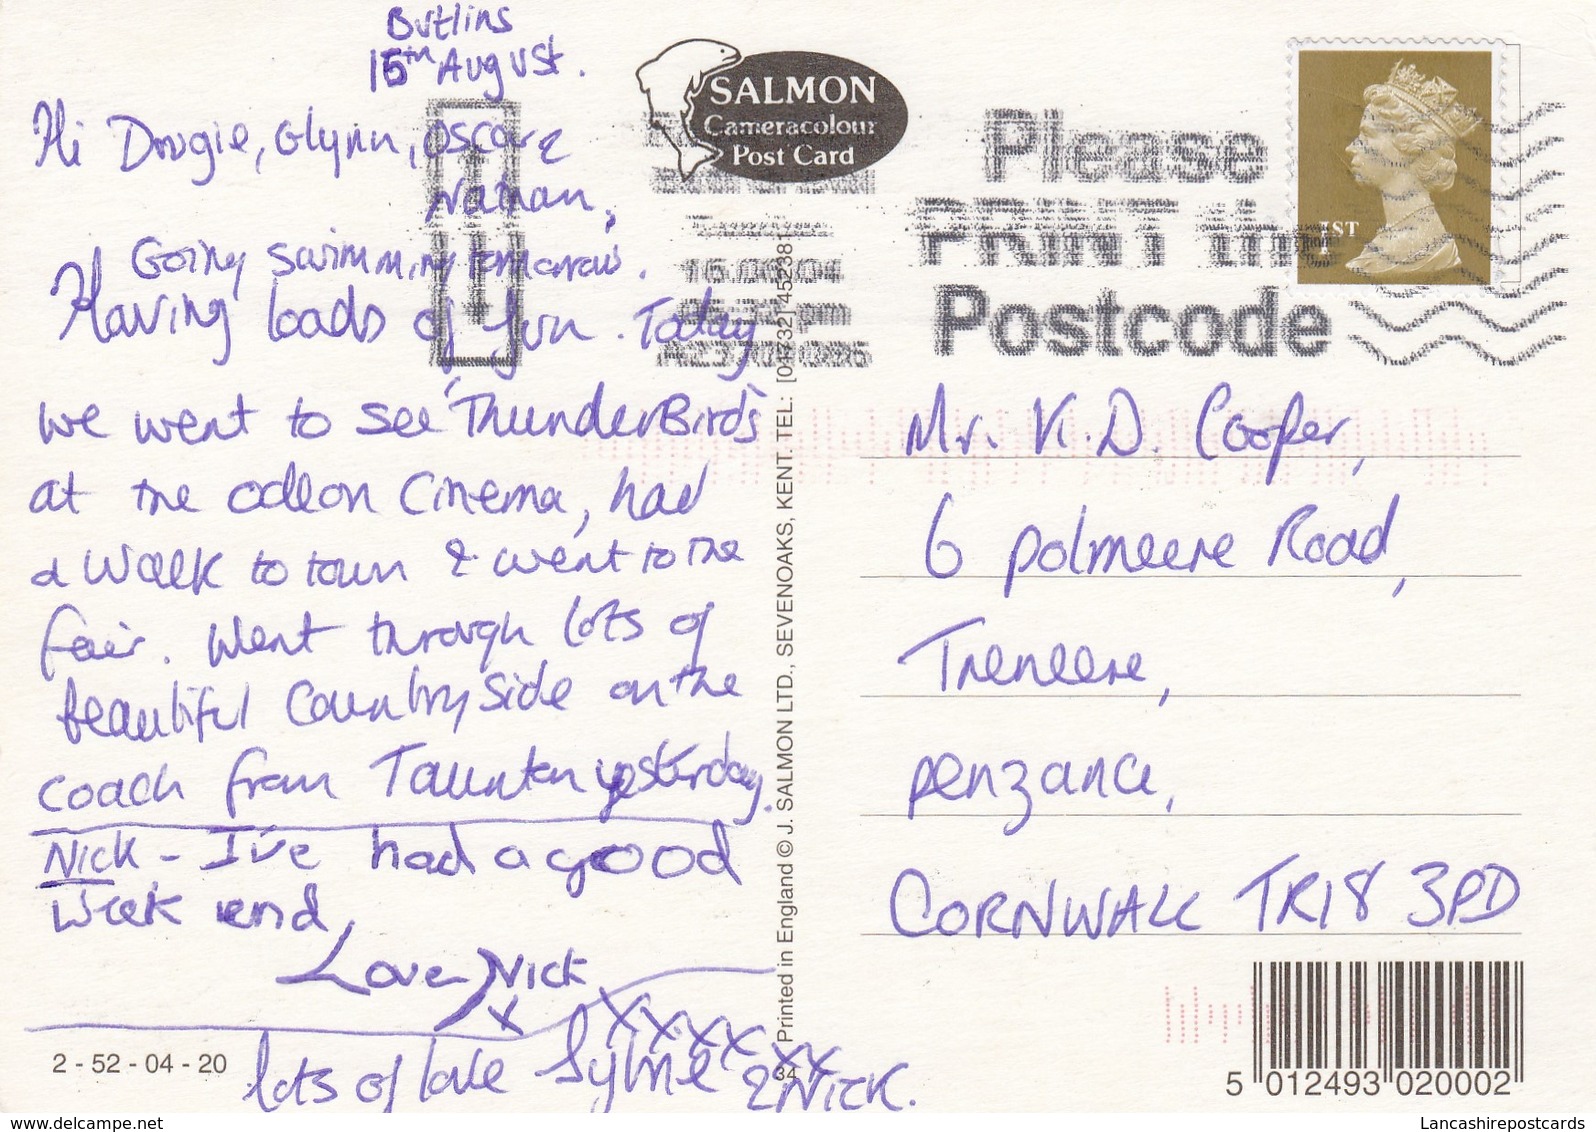 Butlins
15th August.
Hi Dougie, Glynn, Oscar &
Nathan,
Going swimming tomorrow.
Having loads of fun. Today
we went to see 'ThunderBirds'
at the odeon Cinema, had
a walk to town & went to the
fair. Went through lots of
beautiful Countryside on the
coach from Taunton yesterday.
Nick - I've had a good
week end,
Love Nick
x
xxxx xx
lots of love Sylme & Nick.
2 - 52 - 04 - 20
SALMON
Cameracolour
Post Card
Printed in England © J. SALMON LTD., SEVENOAKS, KENT. TEL: [01732] 452381
34
Please
PRINT the
Postcode
1ST
Mr. K.D. Cooper,
6 polmeere Road,
Treneere,
penzance,
CORNWALL TR18 3PD
5 012493 020002
Lancashirepostcards
www.delcampe.net